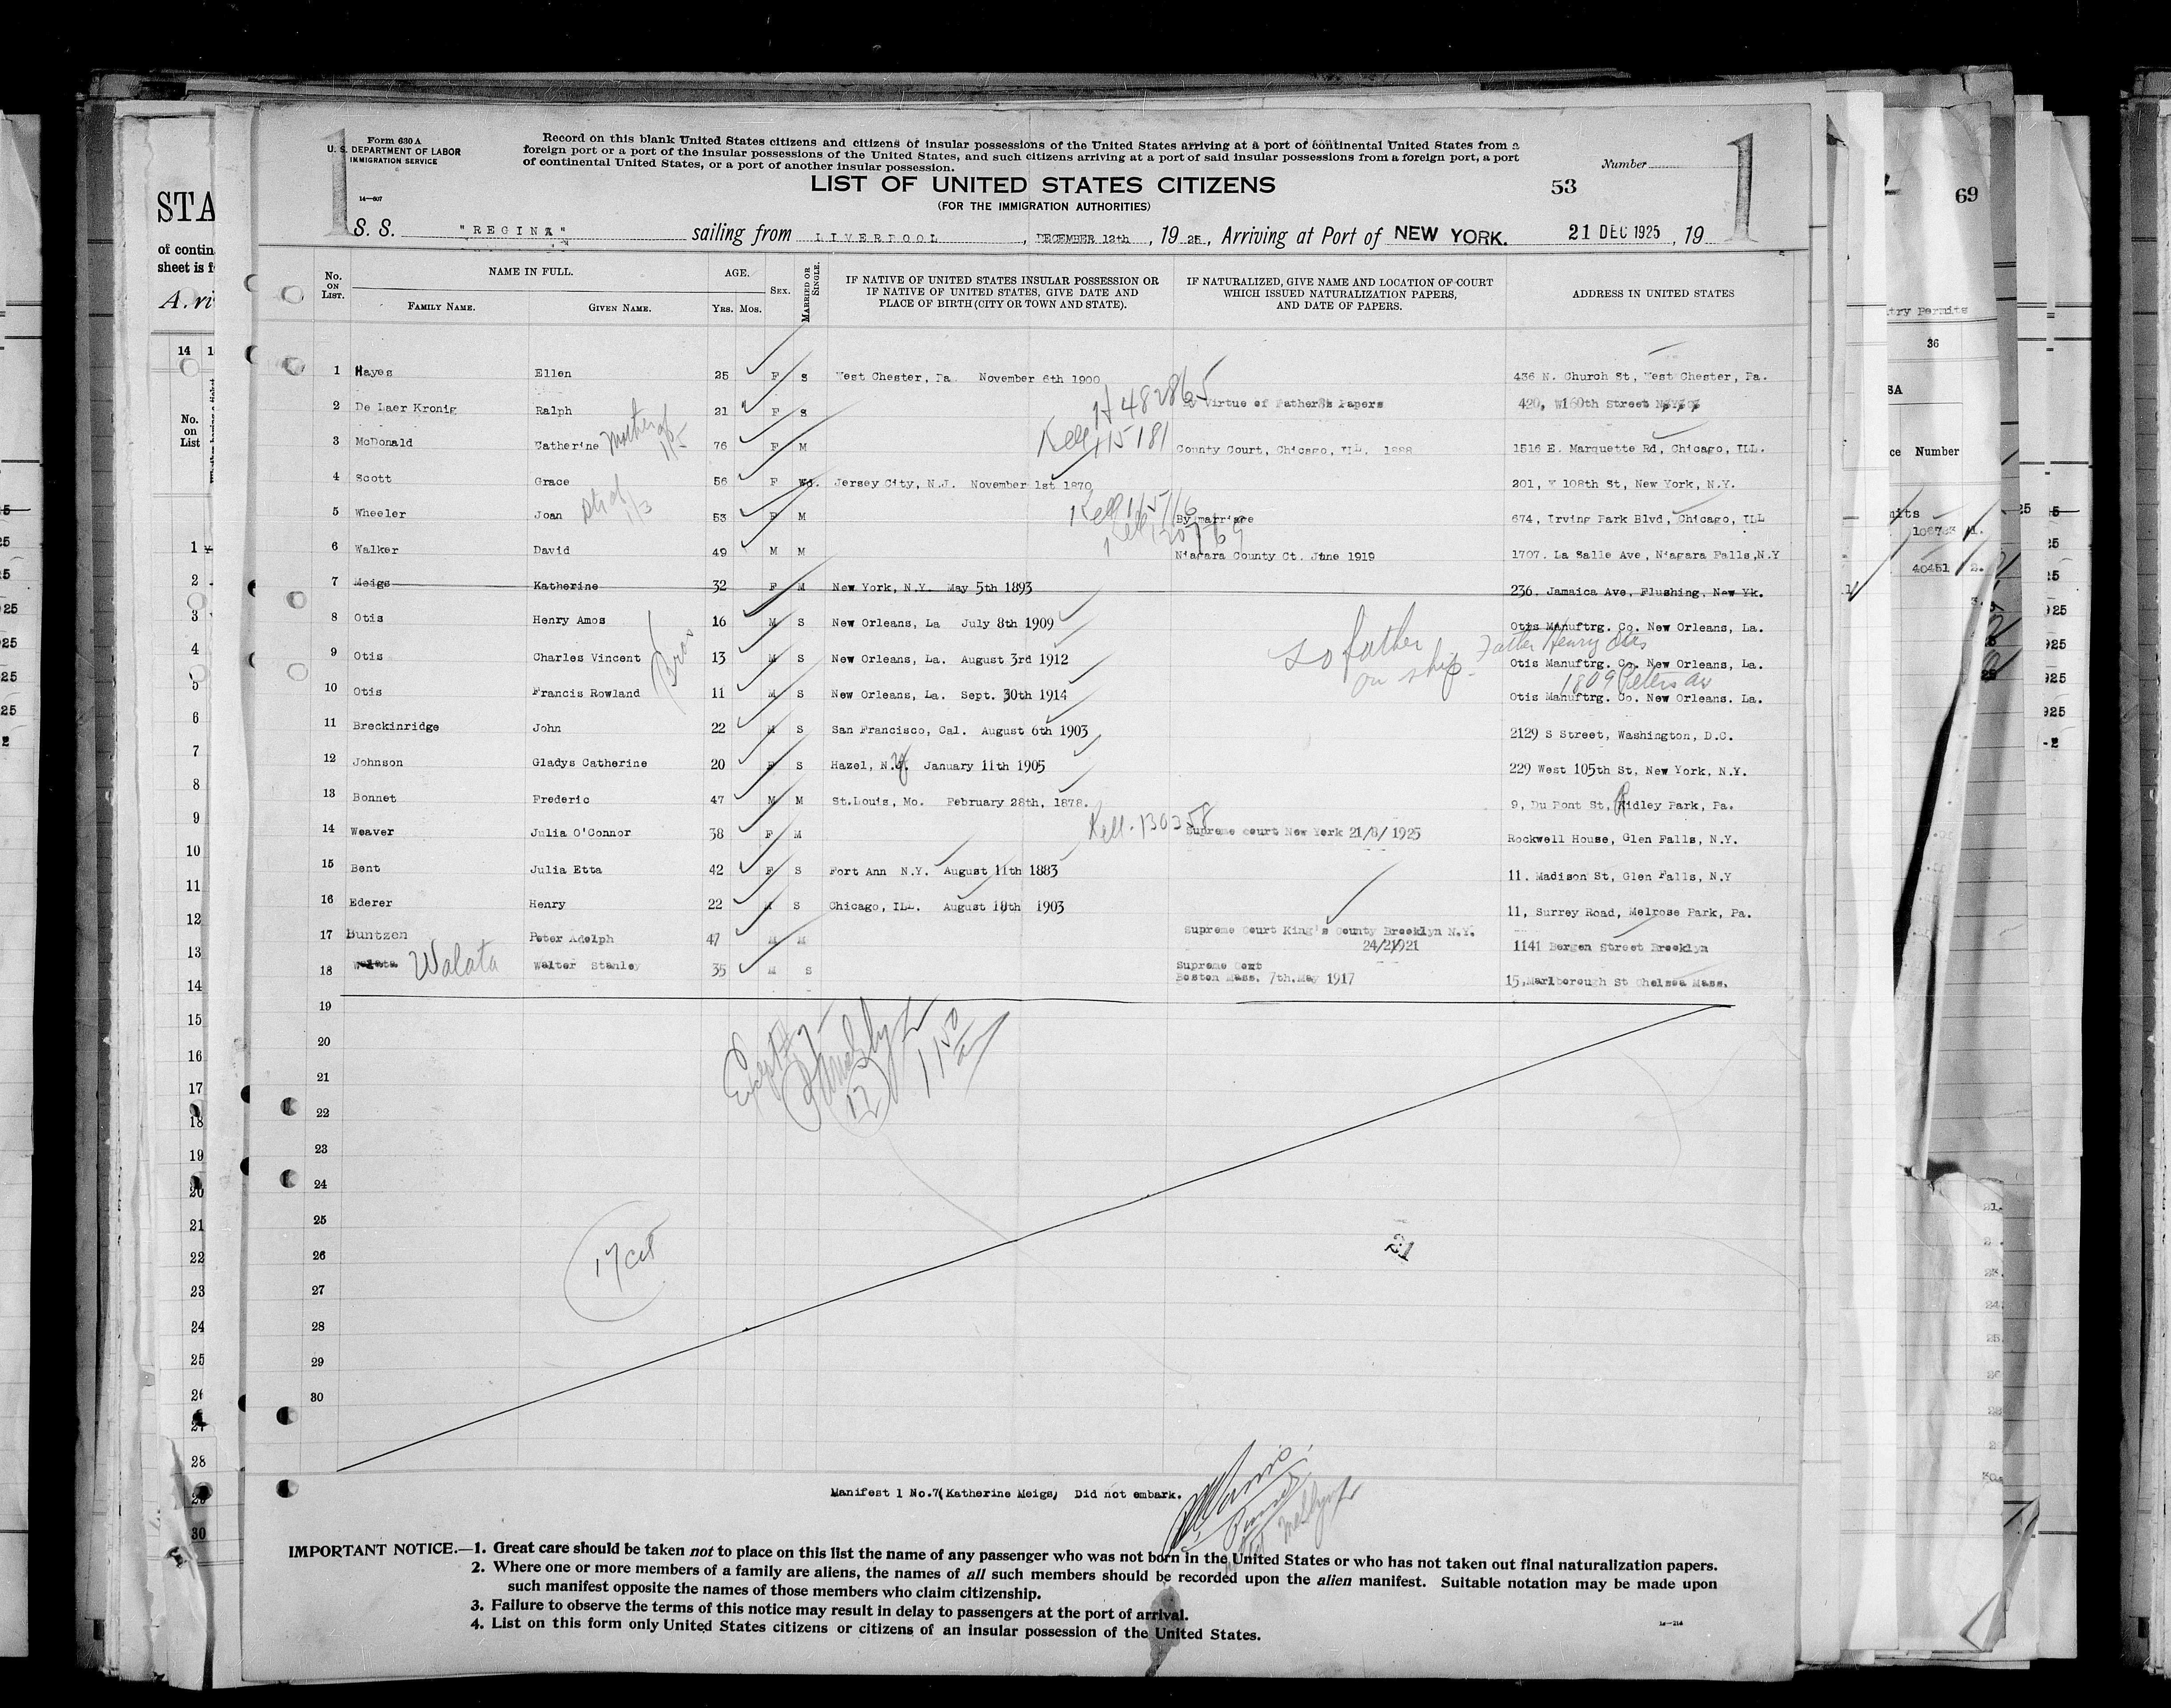 Form 630 A
U. S. DEPARTMENT OF LABOR
IMMIGRATION SERVICE
14—607
1
Record on this blank United States citizens and citizens of insular possessions of the United States arriving at a port of continental United States from a
foreign port or a port of the insular possessions of the United States, and such citizens arriving at a port of said insular possessions from a foreign port, a port
of continental United States, or a port of another insular possession.
Number
1
LIST OF UNITED STATES CITIZENS
53
(FOR THE IMMIGRATION AUTHORITIES)
S. S. "REGINA" sailing from LIVERPOOL, DECEMBER 12th, 19 25, Arriving at Port of NEW YORK. 21 DEC 1925, 19
No. ON LIST. NAME IN FULL. FAMILY NAME. GIVEN NAME. AGE. YRS. MOS. SEX. MARRIED OR SINGLE. IF NATIVE OF UNITED STATES INSULAR POSSESSION OR IF NATIVE OF UNITED STATES, GIVE DATE AND PLACE OF BIRTH (CITY OR TOWN AND STATE). IF NATURALIZED, GIVE NAME AND LOCATION OF COURT WHICH ISSUED NATURALIZATION PAPERS, AND DATE OF PAPERS. ADDRESS IN UNITED STATES
1 Hayes Ellen 25 F S West Chester, Pa. November 6th 1900 436 N. Church St, West Chester, Pa.
2 De Laer Kronig Ralph 21 F S H 482865 By Virtue of Father's Papers 420, W160th Street N.Y.
3 McDonald Catherine Mother of 1/5 76 F M 115181 County Court, Chicago, ILL. 1888 1516 E. Marquette Rd, Chicago, ILL.
4 Scott Grace 56 F Wd. Jersey City, N.J. November 1st 1870 201, W 108th St, New York, N.Y.
5 Wheeler Joan 1/3 53 F M By marriage 674, Irving Park Blvd, Chicago, ILL
6 Walker David 49 M M Niagara County Ct. June 1919 1707. La Salle Ave, Niagara Falls,N.Y
7 Meigs Katherine 32 F M New York, N.Y. May 5th 1893 236. Jamaica Ave, Flushing, New Yk.
8 Otis Henry Amos 16 M S New Orleans, La July 8th 1909 Otis Manuftrg. Co. New Orleans, La.
Bros
to father on ship. Father Henry Otis
9 Otis Charles Vincent 13 M S New Orleans, La. August 3rd 1912 Otis Manuftrg. Co. New Orleans, La.
1809 Peters Av
10 Otis Francis Rowland 11 M S New Orleans, La. Sept. 30th 1914 Otis Manuftrg. Co. New Orleans. La.
11 Breckinridge John 22 M S San Francisco, Cal. August 6th 1903 2129 S Street, Washington, D.C.
12 Johnson Gladys Catherine 20 F S Hazel, N.Y. January 11th 1905 229 West 105th St, New York, N.Y.
13 Bonnet Frederic 47 M M St.Louis, Mo. February 28th, 1878. 9, Du Pont St, Ridley Park, Pa.
14 Weaver Julia O'Connor 38 F M 130258 Supreme court New York 21/8/1925 Rockwell House, Glen Falls, N.Y.
15 Bent Julia Etta 42 F S Fort Ann N.Y. August 11th 1883 11. Madison St, Glen Falls, N.Y
16 Ederer Henry 22 M S Chicago, ILL. August 18th 1903 11, Surrey Road, Melrose Park, Pa.
17 Buntzen Peter Adolph 47 M M Supreme Court King's County Brooklyn N.Y. 1141 Bergen Street Brooklyn
18 Walata Walter Stanley 35 M S Supreme Cort Boston Mass. 7th.May 1917 15.Marlborough St Chelsea Mass.
19
20
21
22
23
24
25
26
27
28
29
30
17
17 cit
21
Manifest 1 No.7(Katherine Meigs) Did not embark.
IMPORTANT NOTICE.—1. Great care should be taken not to place on this list the name of any passenger who was not born in the United States or who has not taken out final naturalization papers.
2. Where one or more members of a family are aliens, the names of all such members should be recorded upon the alien manifest. Suitable notation may be made upon
such manifest opposite the names of those members who claim citizenship.
3. Failure to observe the terms of this notice may result in delay to passengers at the port of arrival.
4. List on this form only United States citizens or citizens of an insular possession of the United States.
STA
of contin
sheet is f
No. on List
69
36
Number